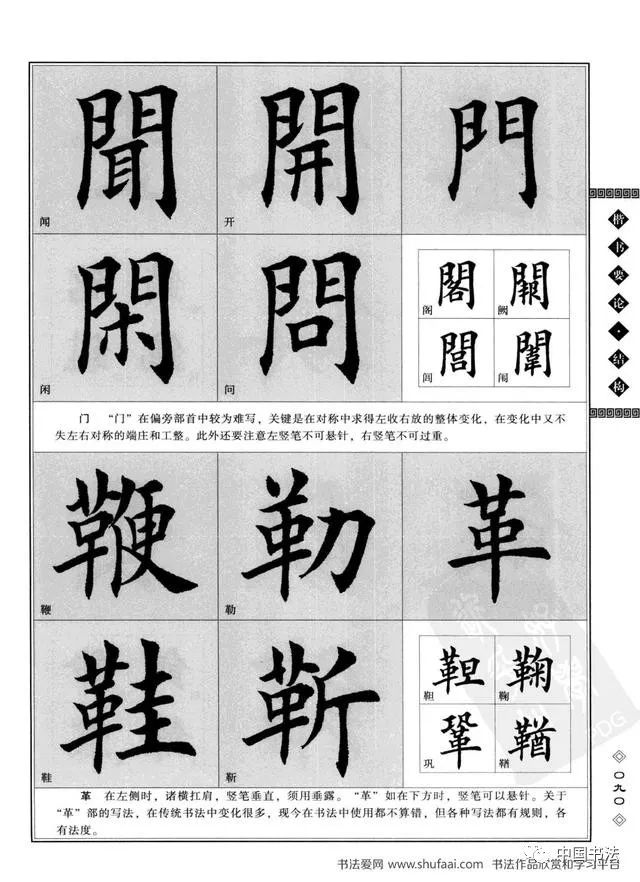 聞 開 門
闻 开
閑 問 閣 闕
阁 阙
閭 闈
闲 问 闾 闱
门 “门”在偏旁部首中较为难写，关键是在对称中求得左收右放的整体变化，在变化中又不
失左右对称的端庄和工整。此外还要注意左竖笔不可悬针，右竖笔不可过重。
鞭 勒 革
鞭 勒
鞋 靳 靼 鞠
靼 鞠
鞏
鞋 靳 巩
革 在左侧时，诸横扛肩，竖笔垂直，须用垂露。“革”如在下方时，竖笔可以悬针。关于
“革”部的写法，在传统书法中变化很多，现今在书法中使用都不算错，但各种写法都有规则，各
有法度。
楷书要论·结构
〇九〇
PDG
中国书法
书法爱网 www.shufaai.com 书法作品欣赏和学习平台